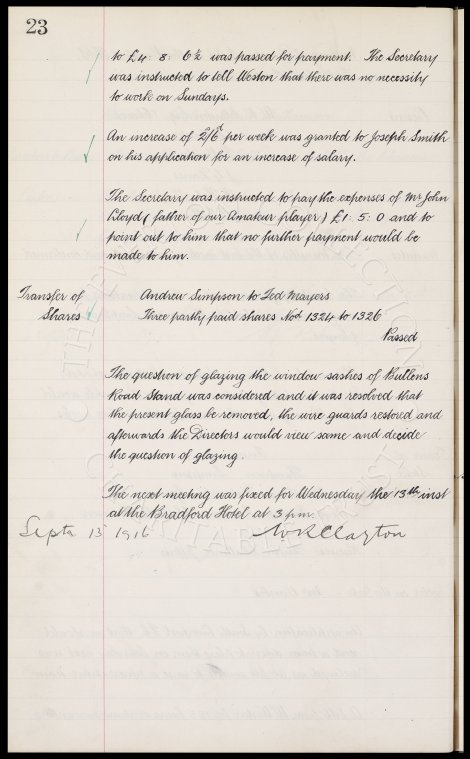 23
to £4. 8. 6½ was passed for payment. The Secretary
was instructed to tell Weston that there was no necessity
to work on Sundays.
An increase of 2/6d per week was granted to Joseph Smith
on his application for an increase of salary.
The Secretary was instructed to pay the expenses of Mr John
Lloyd (father of our Amateur player) £1. 5. 0 and to
point out to him that no further payment would be
made to him.
Transfer of Andrew Simpson to Ted Mayers
Shares Three partly paid shares Nod 1324 to 1326
Passed
The question of glazing the window sashes of Bullens
Road Stand was considered and it was resolved that
the present glass be removed, the wire guards restored and
afterwards the Directors would view same and decide
the question of glazing.
The next meeting was fixed for Wednesday the 13th inst
at the Bradford Hotel at 3 pm.
Septr 13 1916 W R Clayton